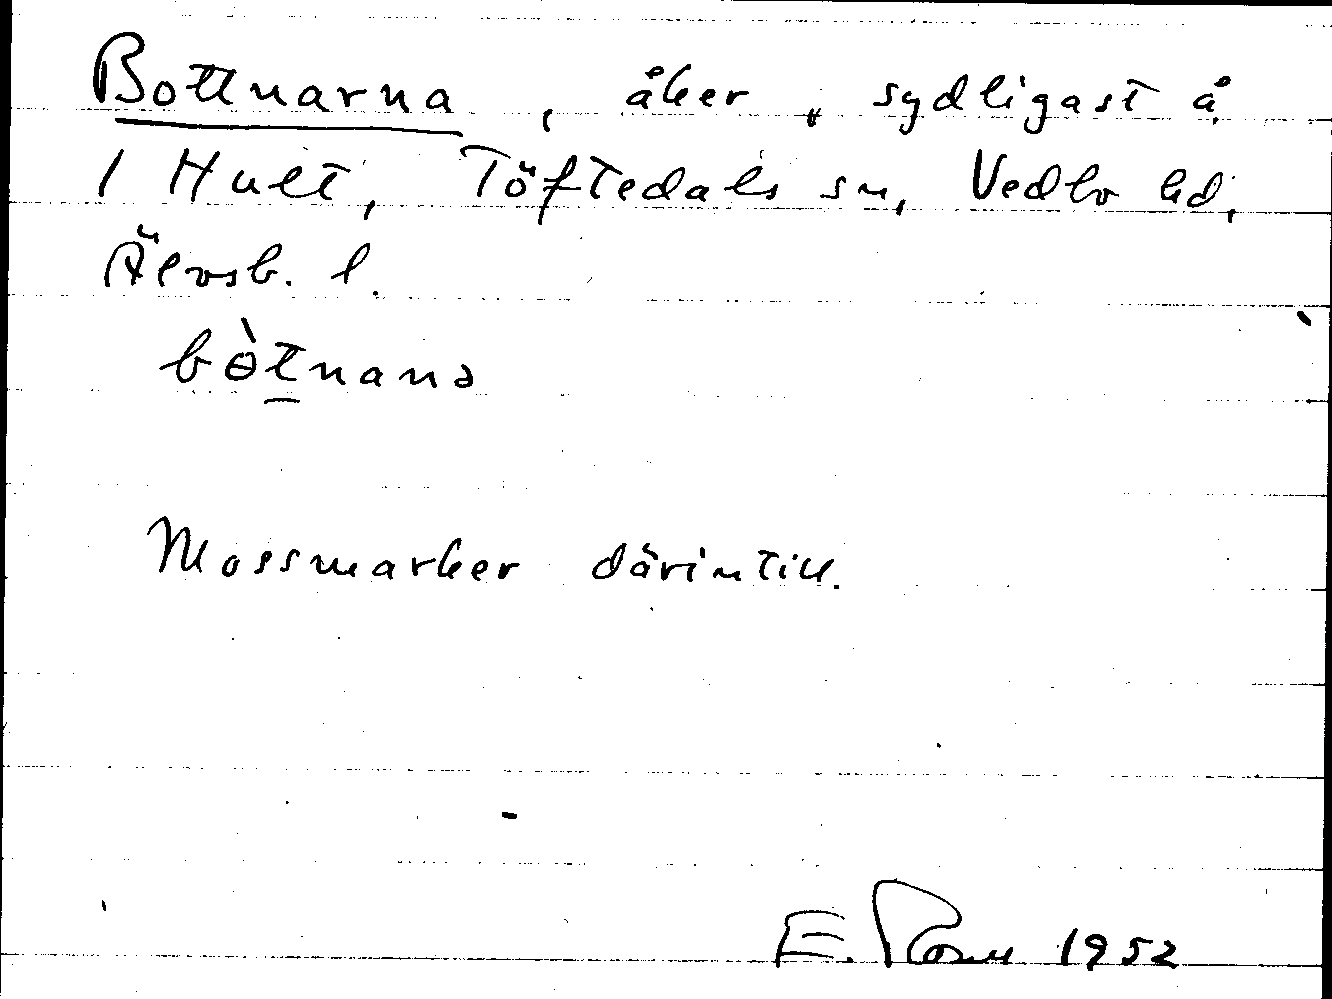 Bottnarna, åker, sydligast å
1 Hult, Töftedals sn, Vedbo hd,
Älvsb. l.
bòtnana
Mossmarker därintill.
E. 1952